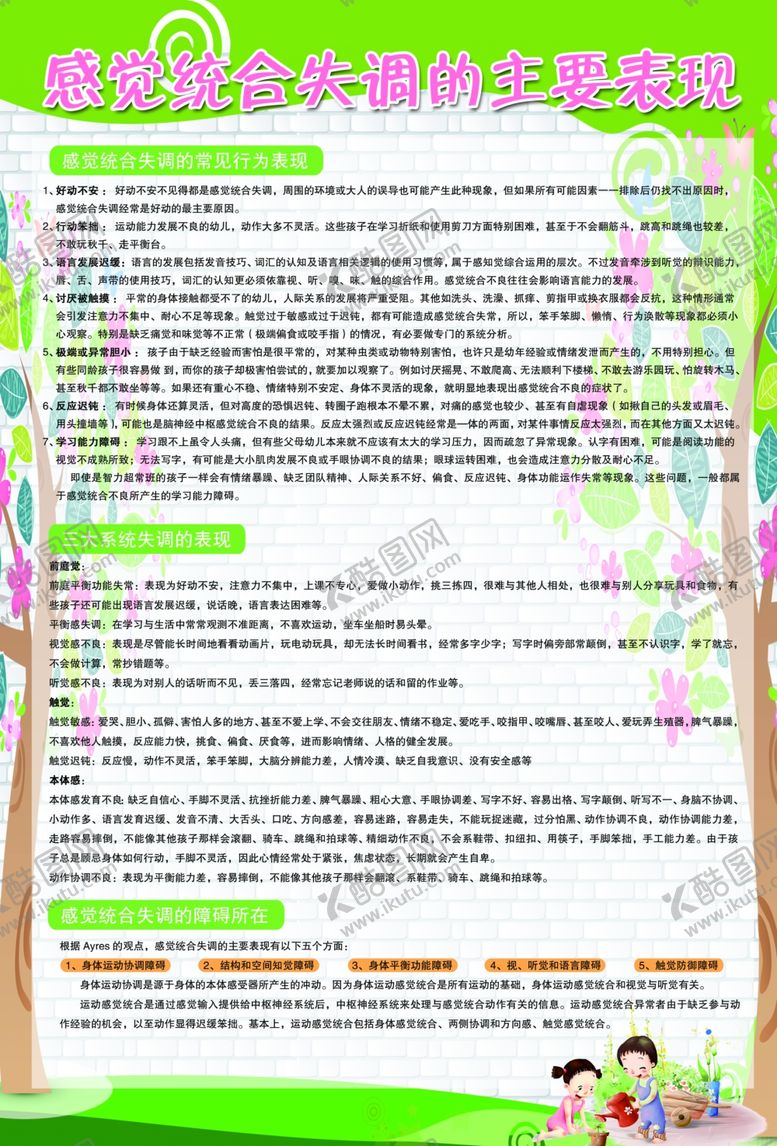 感觉统合失调的主要表现
感觉统合失调的常见行为表现
1、好动不安： 好动不安不见得都是感觉统合失调，周围的环境或大人的误导也可能产生此种现象，但如果所有可能因素一一排除后仍找不出原因时，
感觉统合失调经常是好动的最主要原因。
2、行动笨拙： 运动能力发展不良的幼儿，动作大多不灵活。这些孩子在学习折纸和使用剪刀方面特别困难，甚至于不会翻筋斗，跳高和跳绳也较差，
不敢玩秋千、走平衡台。
3、语言发展迟缓：语言的发展包括发音技巧、词汇的认知及语言相关逻辑的使用习惯等，属于感知觉综合运用的层次。不过发音牵涉到听觉的辩识能力，
唇、舌、声带的使用技巧，词汇的认知更必须依靠视、听、嗅、味、触的综合作用。感觉统合不良往往会影响语言能力的发展。
4、讨厌被触摸： 平常的身体接触都受不了的幼儿，人际关系的发展将严重受阻。其他如洗头、洗澡、抓痒、剪指甲或换衣服都会反抗，这种情形通常
会引发注意力不集中、耐心不足等现象。触觉过于敏感或过于迟钝，都有可能造成感觉统合失常，所以，笨手笨脚、懒惰、行为涣散等现象都必须小
心观察。特别是缺乏痛觉和味觉等不正常（极端偏食或咬手指）的情况，有必要做专门的系统分析。
5、极端或异常胆小： 孩子由于缺乏经验而害怕是很平常的，对某种虫类或动物特别害怕，也许只是幼年经验或情绪发泄而产生的，不用特别担心。但
有些同龄孩子很容易做 到，而你的孩子却极害怕尝试的，就要加以观察了。例如讨厌摇晃、不敢爬高、无法顺利下楼梯、不敢去游乐园玩、怕旋转木马、
甚至秋千都不敢坐等等。如果还有重心不稳、情绪特别不安定、身体不灵活的现象，就明显地表现出感觉统合不良的症状了。
6、反应迟钝： 有时候身体还算灵活，但对高度的恐惧迟钝、转圈子跑根本不晕不累，对痛的感觉也较少、甚至有自虐现象（如揪自己的头发或眉毛、
用头撞墙等），可能也是脑神经中枢感觉统合不良的结果。反应太强烈或反应迟钝经常是一体的两面，对某件事情反应太强烈，而在其他方面又太迟钝。
7、学习能力障碍： 学习跟不上虽令人头痛，但有些父母幼儿本来就不应该有太大的学习压力，因而疏忽了异常现象。认字有困难，可能是阅读功能的
视觉不成熟所致；无法写字，有可能是大小肌肉发展不良或手眼协调不良的结果；眼球运转困难，也会造成注意力分散及耐心不足。
即使是智力超常班的孩子一样会有情绪暴躁、缺乏团队精神、人际关系不好、偏食、反应迟钝、身体功能运作失常等现象。这些问题，一般都属
于感觉统合不良所产生的学习能力障碍。
三大系统失调的表现
前庭觉：
前庭平衡功能失常：表现为好动不安，注意力不集中，上课不专心，爱做小动作，挑三拣四，很难与其他人相处，也很难与别人分享玩具和食物，有
些孩子还可能出现语言发展迟缓，说话晚，语言表达困难等。
平衡感失调：在学习与生活中常常观测不准距离，不喜欢运动，坐车坐船时易头晕。
视觉感不良：表现是尽管能长时间地看看动画片，玩电动玩具，却无法长时间看书，经常多字少字；写字时偏旁部常颠倒，甚至不认识字，学了就忘，
不会做计算，常抄错题等。
听觉感不良：表现为对别人的话听而不见，丢三落四，经常忘记老师说的话和留的作业等。
触觉：
触觉敏感：爱哭、胆小、孤僻、害怕人多的地方、甚至不爱上学、不会交往朋友、情绪不稳定、爱吃手、咬指甲、咬嘴唇、甚至咬人、爱玩弄生殖器，脾气暴躁，
不喜欢他人触摸，反应能力快，挑食、偏食、厌食等，进而影响情绪、人格的健全发展。
触觉迟钝：反应慢，动作不灵活，笨手笨脚，大脑分辨能力差，人情冷漠、缺乏自我意识、没有安全感等
本体感：
本体感发育不良：缺乏自信心、手脚不灵活、抗挫折能力差、脾气暴躁、粗心大意、手眼协调差、写字不好、容易出格、写字颠倒、听写不一、身脑不协调、
小动作多、语言发育迟缓、发音不清、大舌头、口吃、方向感差，容易迷路，容易走失，不能玩捉迷藏，过分怕黑、动作协调不良，动作协调能力差，
走路容易摔倒，不能像其他孩子那样会滚翻、骑车、跳绳和拍球等、精细动作不良，不会系鞋带、扣纽扣、用筷子，手脚笨拙，手工能力差。由于孩
子总是顾忌身体如何行动，手脚不灵活，因此心情经常处于紧张，焦虑状态，长期就会产生自卑。
动作协调不良：表现为平衡能力差，容易摔倒，不能像其他孩子那样会翻滚、系鞋带、骑车、跳绳和拍球等。
感觉统合失调的障碍所在
根据 Ayres 的观点，感觉统合失调的主要表现有以下五个方面：
1、身体运动协调障碍 2、结构和空间知觉障碍 3、身体平衡功能障碍 4、视、听觉和语言障碍 5、触觉防御障碍
身体运动协调是源于身体的本体感受器所产生的冲动。因为身体运动感觉统合是所有运动的基础，身体运动感觉统合和视觉与听觉有关。
运动感觉统合是通过感觉输入提供给中枢神经系统后，中枢神经系统来处理与感觉统合动作有关的信息。运动感觉统合异常者由于缺乏参与动
作经验的机会，以至动作显得迟缓笨拙。基本上，运动感觉统合包括身体感觉统合、两侧协调和方向感、触觉感觉统合。
酷图网
www.ikutu.com